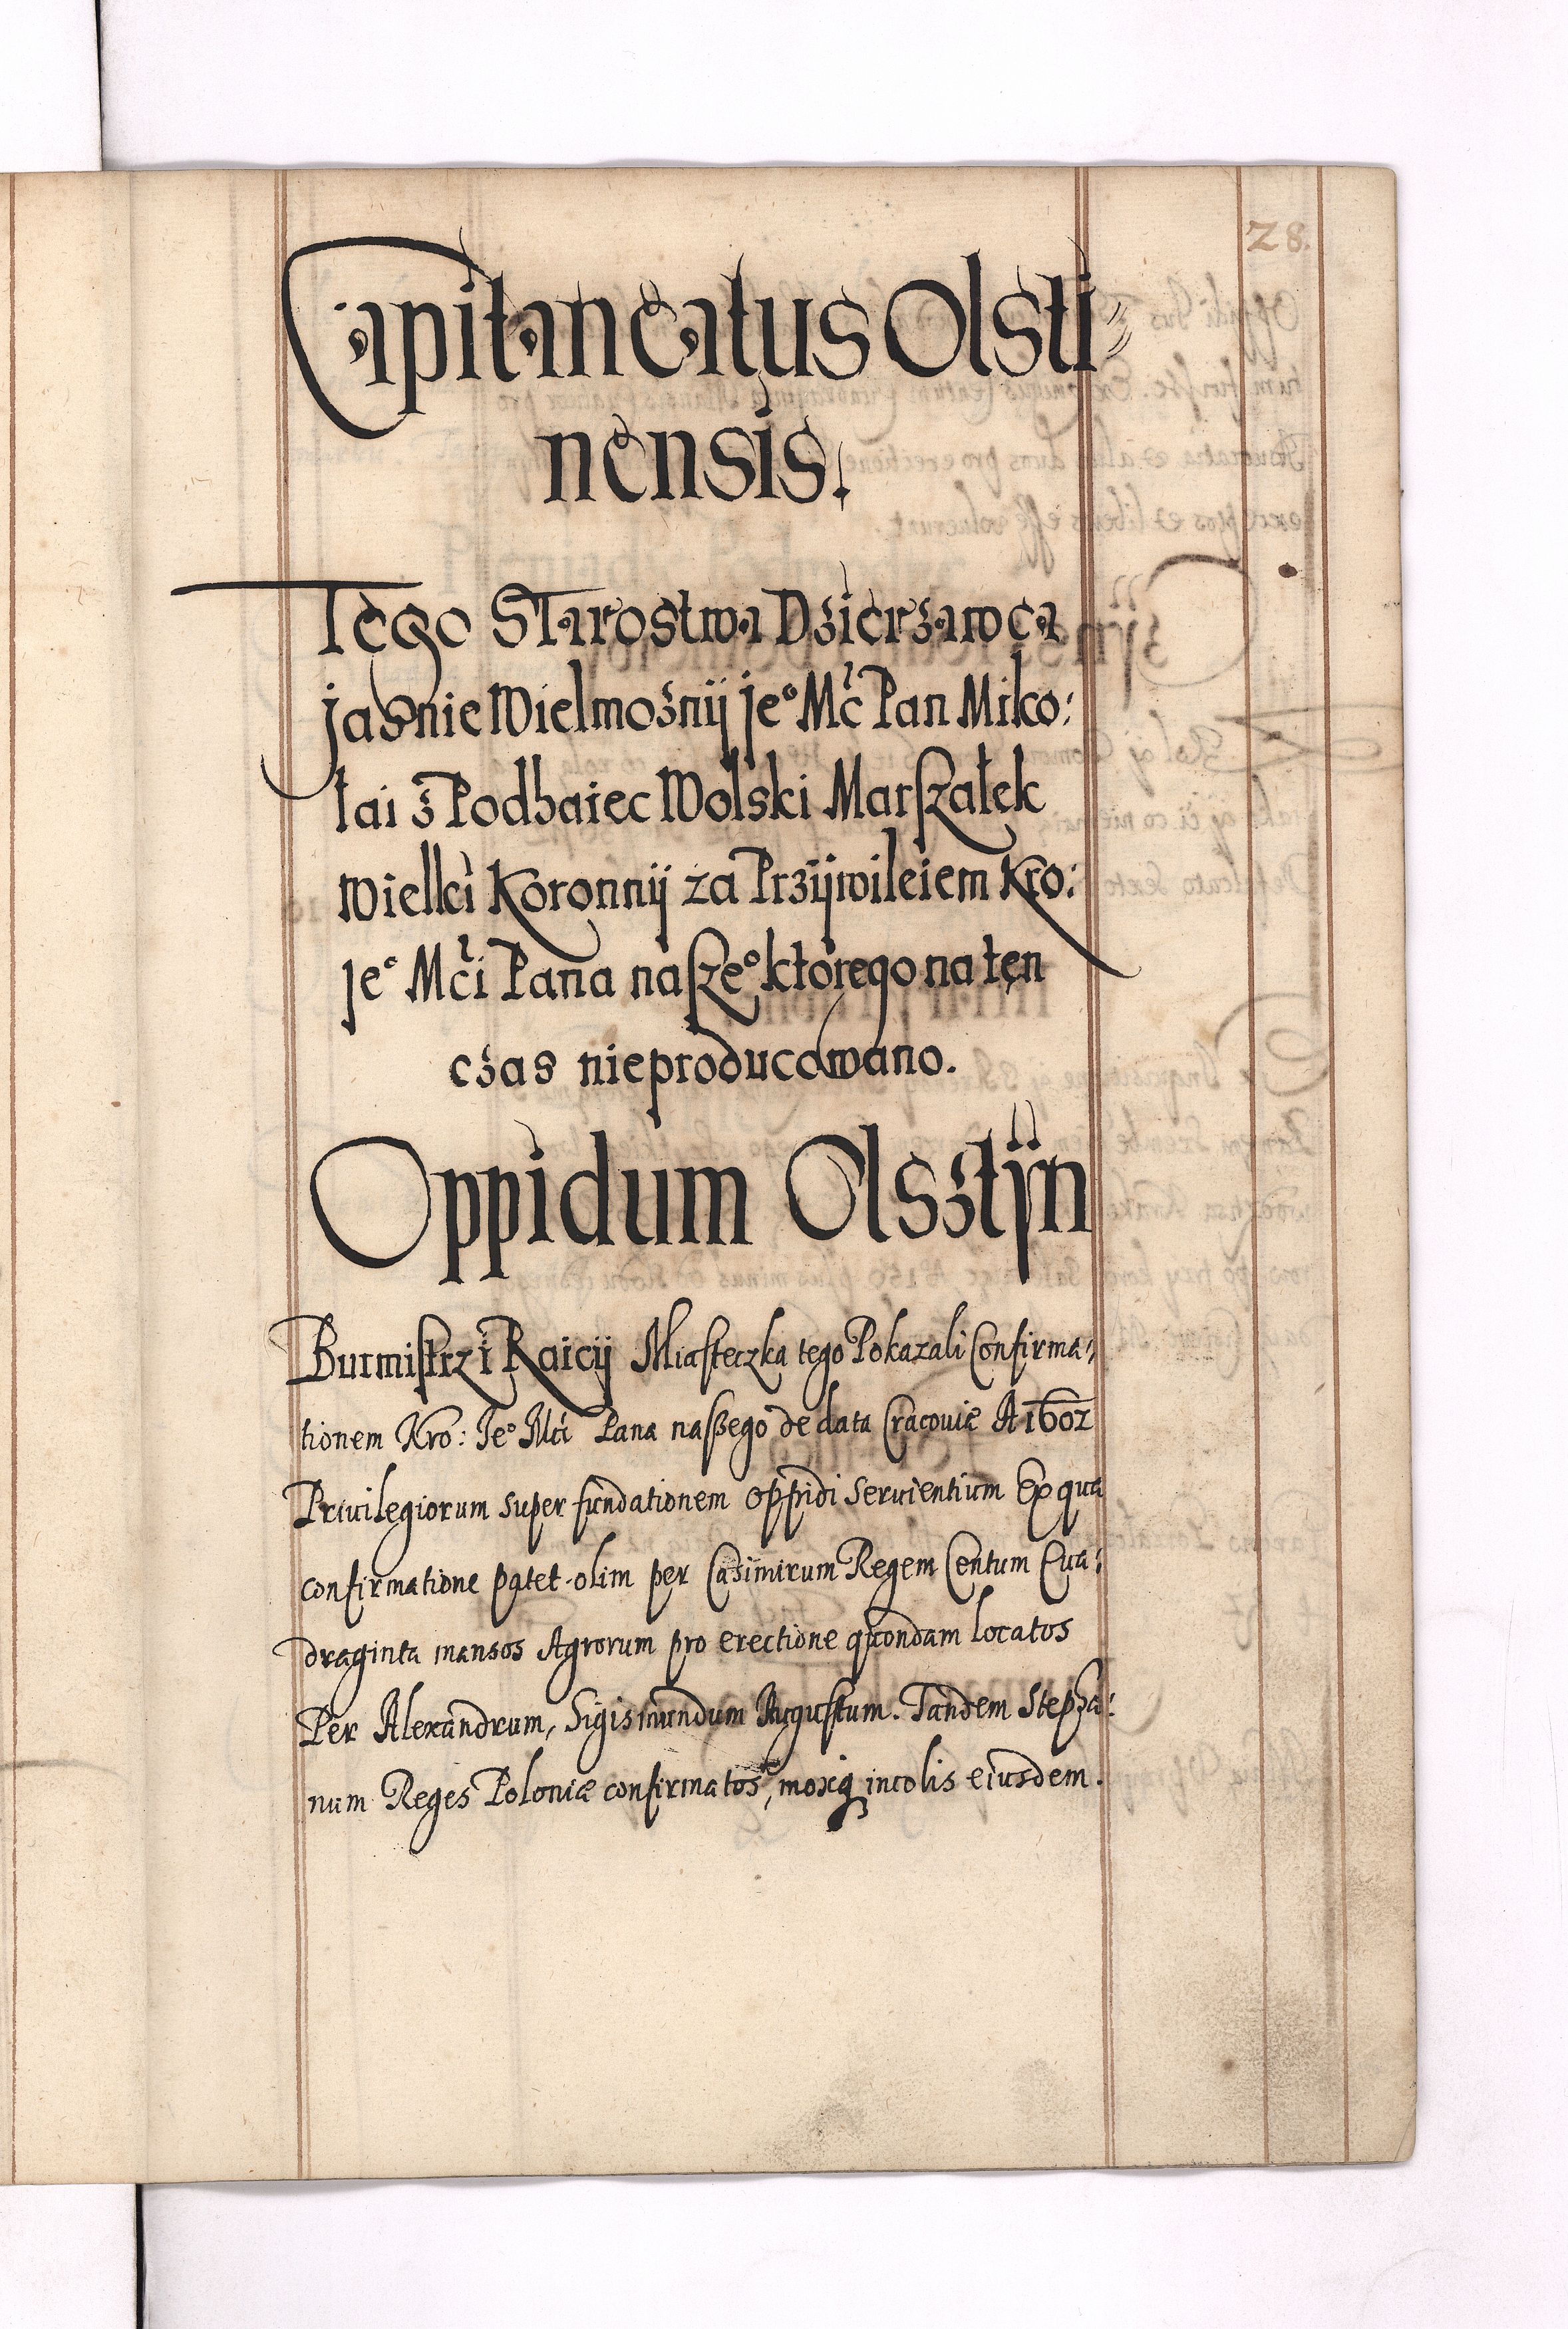 28.
Capitaneatus Olsti⸗
nensis.
Tego Starostwa Dzierzawca
jasnie Wielmoznij jeº Mć Pan Miko:
łai z Podhaiec Wolski Marszałek
Wielki Koronnij za Przijwileiem Kro:
jeº Mći Pana naszeº którego na ten
czas nieproducowano.
Oppidum Olsztijn
Burmistrz i Raicij Miasteczka tego Pokazali Confirma⸗
tionem Kro: Jeº Mći Pana naszego de data Cracouiæ A 1602
Priuilegiorum super fundationem oppidi seruientium Ex qua
confirmatione patet olim per Casimirum Regem Centum Qua:
draginta mansos Agrorum pro erectione quondam locatos
Per Alexandrum, Sigismundum Augustum. Tandem Stepha:
num Reges Poloniæ confirmatos, moxq incolis eiusdem.